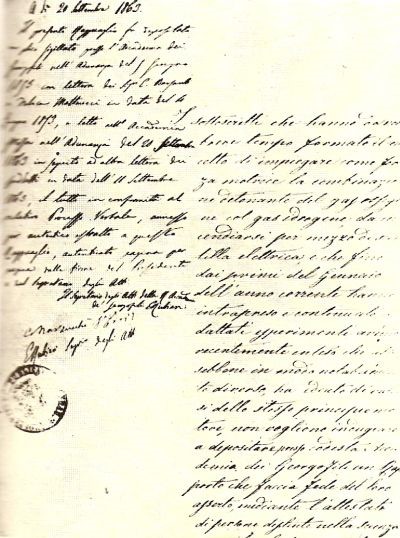 A dì 20 Settembre 1863.
Il presente Ragguaglio fu depositato
sigillato presso l'Accademia dei
Georgofili nell'Adunanza del 5 Giugno
1853 con lettera dei Sigri E. Barsanti
e Matteucci in data del dì
Giugno 1853, e letto nell'Accademia
stessa nell'Adunanza del 20 Settembre
1863 in seguito ad altra lettera dei
in data dell'11 Settembre
1863, il tutto in conformità al
Processo Verbale, annesso
per autentico estratto a questo
Ragguaglio, autenticato pagina per
pagina colla firma del Presidente
e del Segretario degli Atti
Il Segretario degli Atti della R. Accad.
de' Georgofili
Segr. degli Atti
I
sottoscritti che hanno da non
breve tempo formato il con-
cetto di impiegare come for-
za motrice la combinazio-
ne detonante del gas ossige-
ne col gas idrogene da in-
cendiarsi per mezzo di scin-
tilla elettrica, e che fino
dai primi del Gennaio
dell'anno corrente hanno
intrapreso e continuati
dattati esperimenti
recentemente intesi che
sebbene in modo notabilmen-
te diverso, ha ideato di
si dello stesso principio mo-
tore, non vogliono indugiare
a depositare presso codesta Acca-
demia dei Georgofili un Rap-
porto che faccia fede del loro
asserto, mediante l'attestato
di persone distinte nella scienza